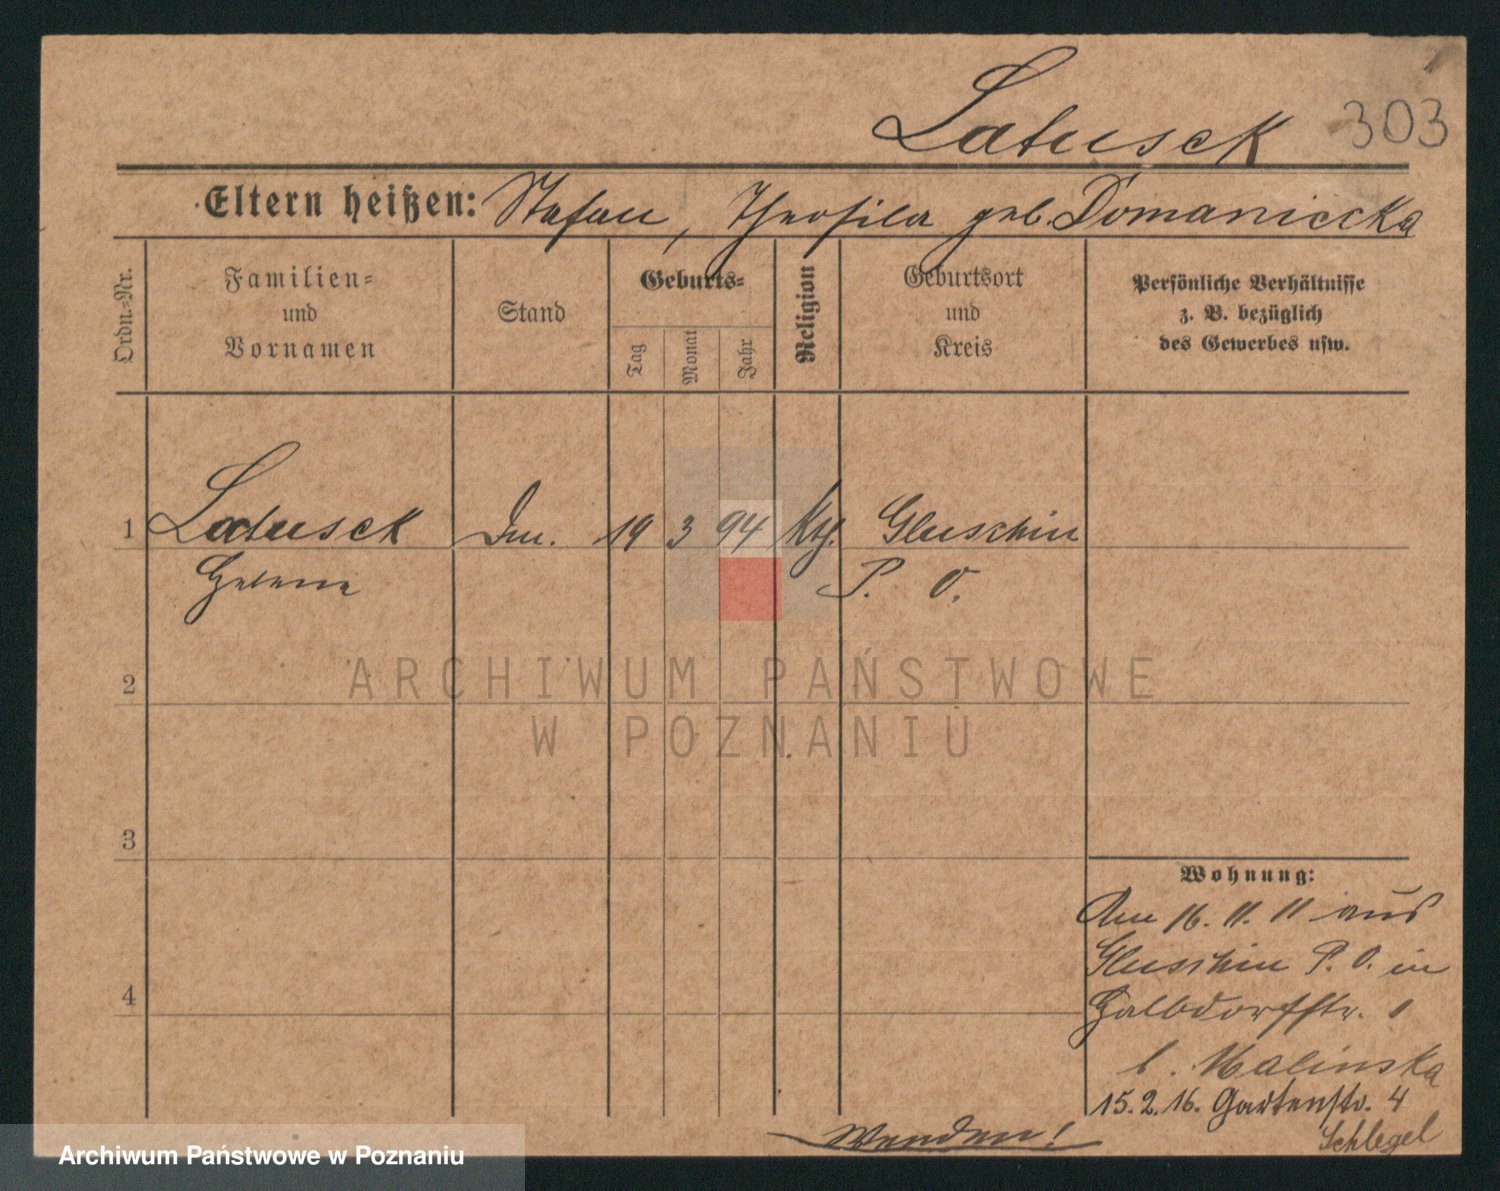 Latusck 303
Eltern heißen: Stefan, Theofila geb. Domaniecka
Ordn.-Nr.
Familien-
und
Vornamen
Stand
Geburts-
Tag
Monat
Jahr
Religion
Geburtsort
und
Kreis
Persönliche Verhältnisse
z. B. bezüglich
des Gewerbes usw.
1 Latusck 19 3 94 Kth. Gluschin
Helene P. O.
2
ARCHIWUM PAŃSTWOWE
W POZNANIU
3
Wohnung:
Am 16. 11. 11 aus
Gluschin P. O. in
4
Halbdorfstr. 1
b. Malinska
15. 2. 16. Gartenstr. 4
Schlegel
Wenden!
Archiwum Państwowe w Poznaniu